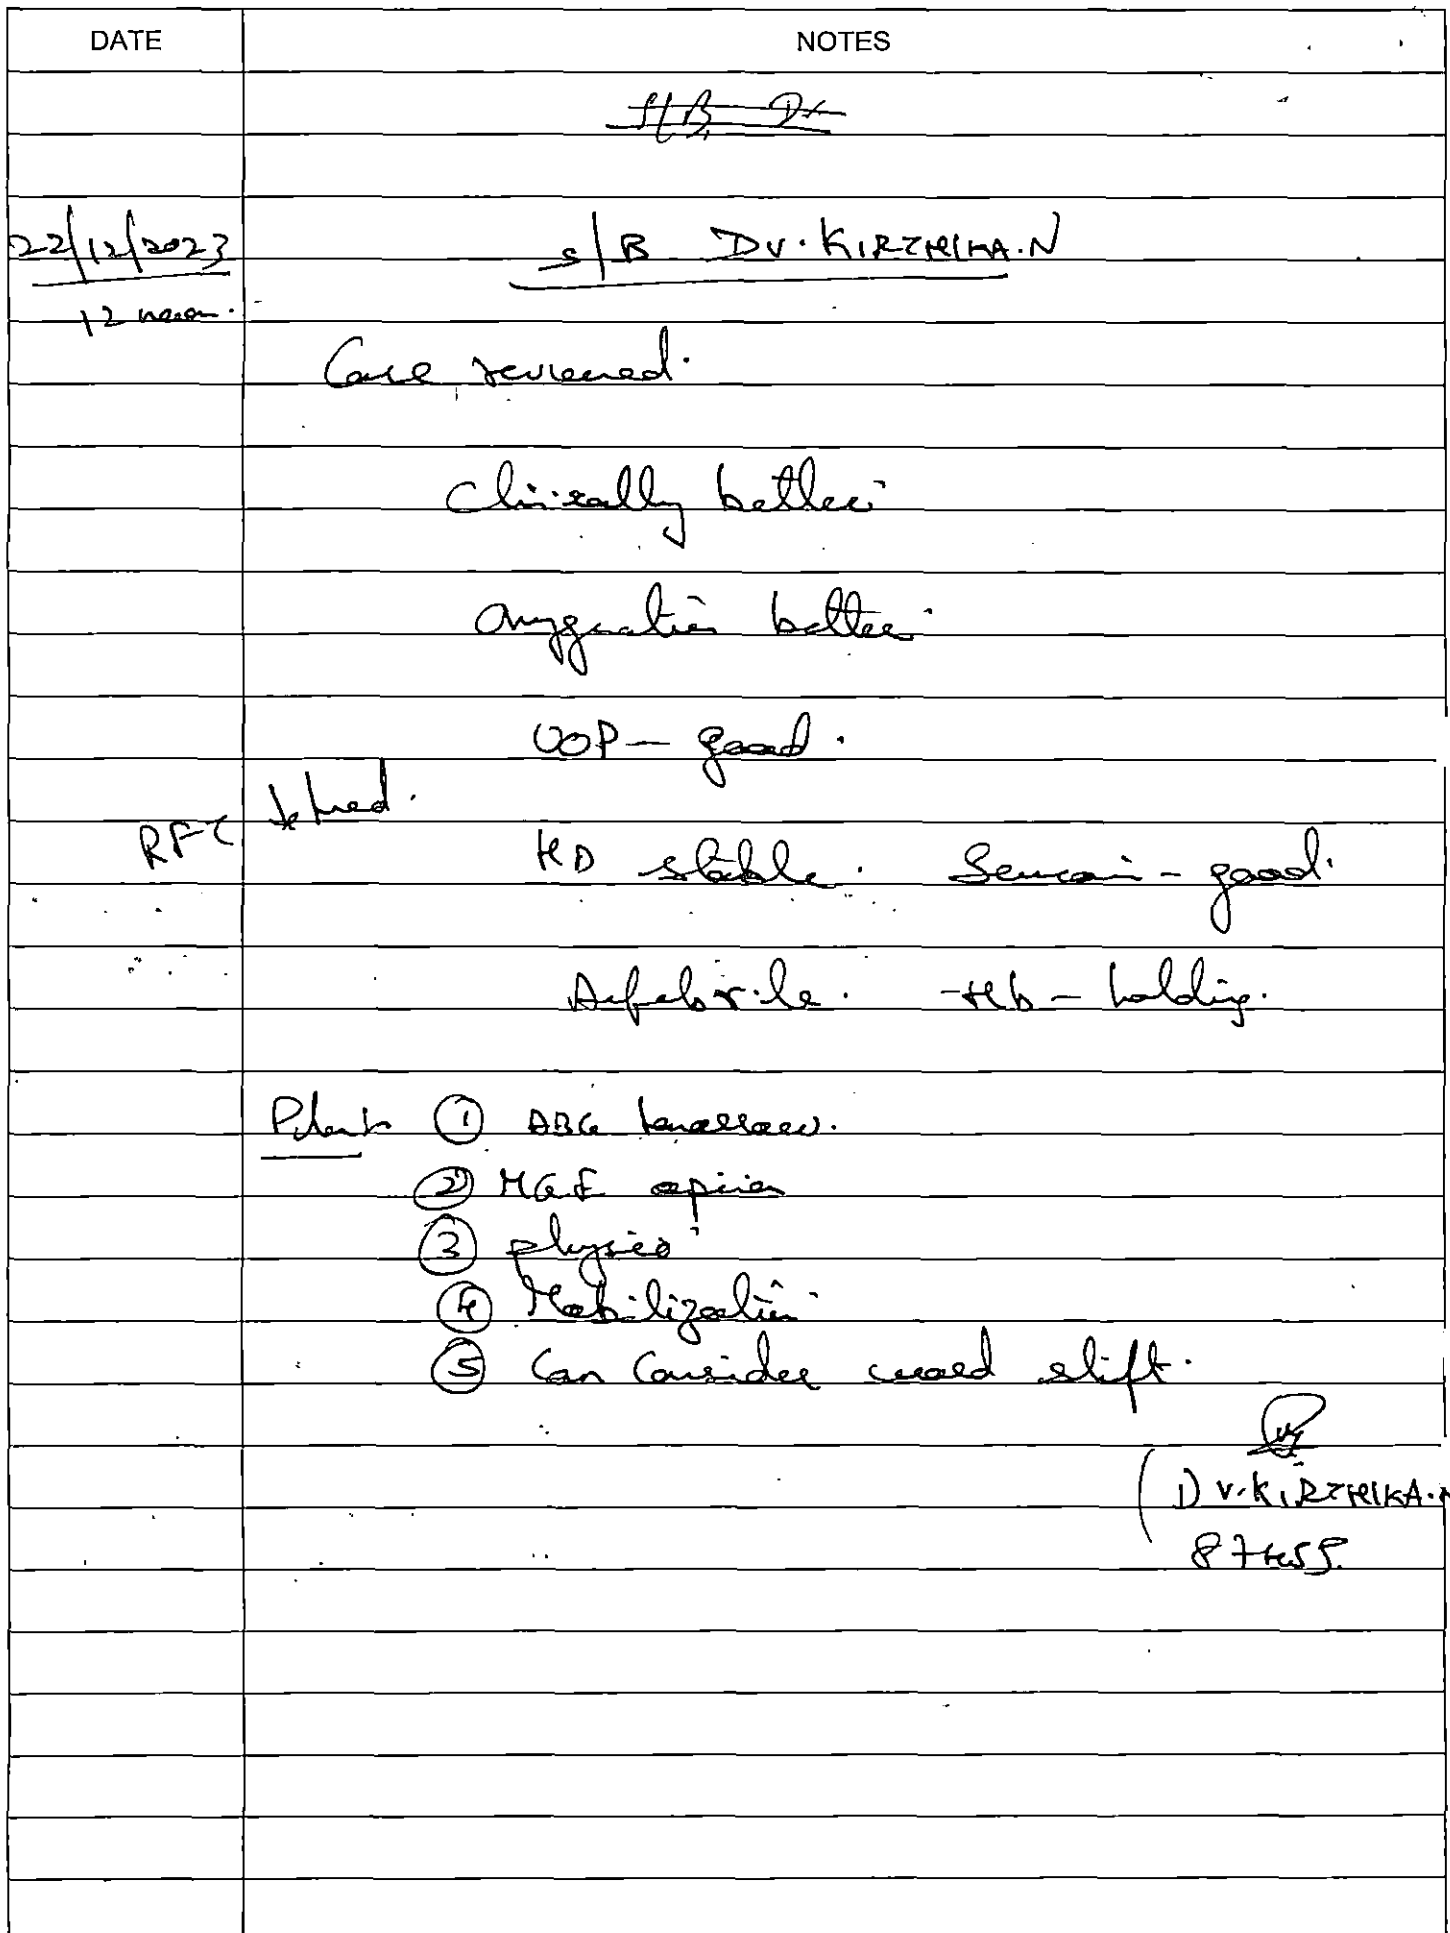 DATE NOTES
S/B Dr
22/12/2023 S/B Dr. KIRTHIKA.N
12 noon.
Case reviewed.
Clinically better
Oxygenation better
UOP – good.
RFT
HD stable. – good.
Afebrile. Hb – holding.
Plan ① ABG tomorrow.
② MGE opinion
③ physio
④ Mobilization
⑤ Can Consider ward shift.
(Dr. KIRTHIKA.N